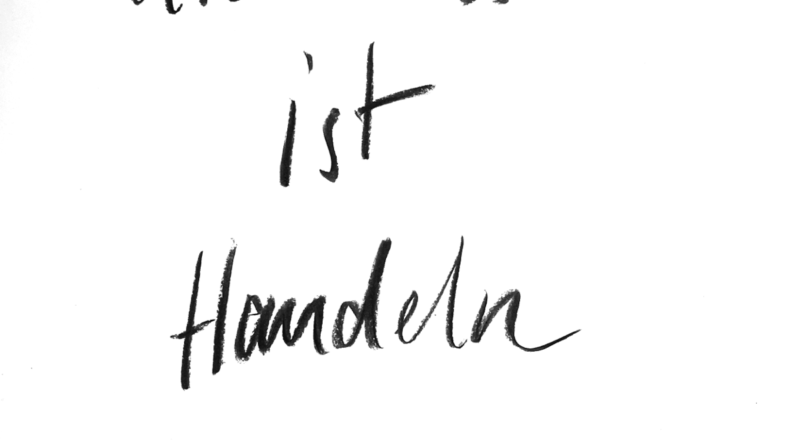 ist
Handeln